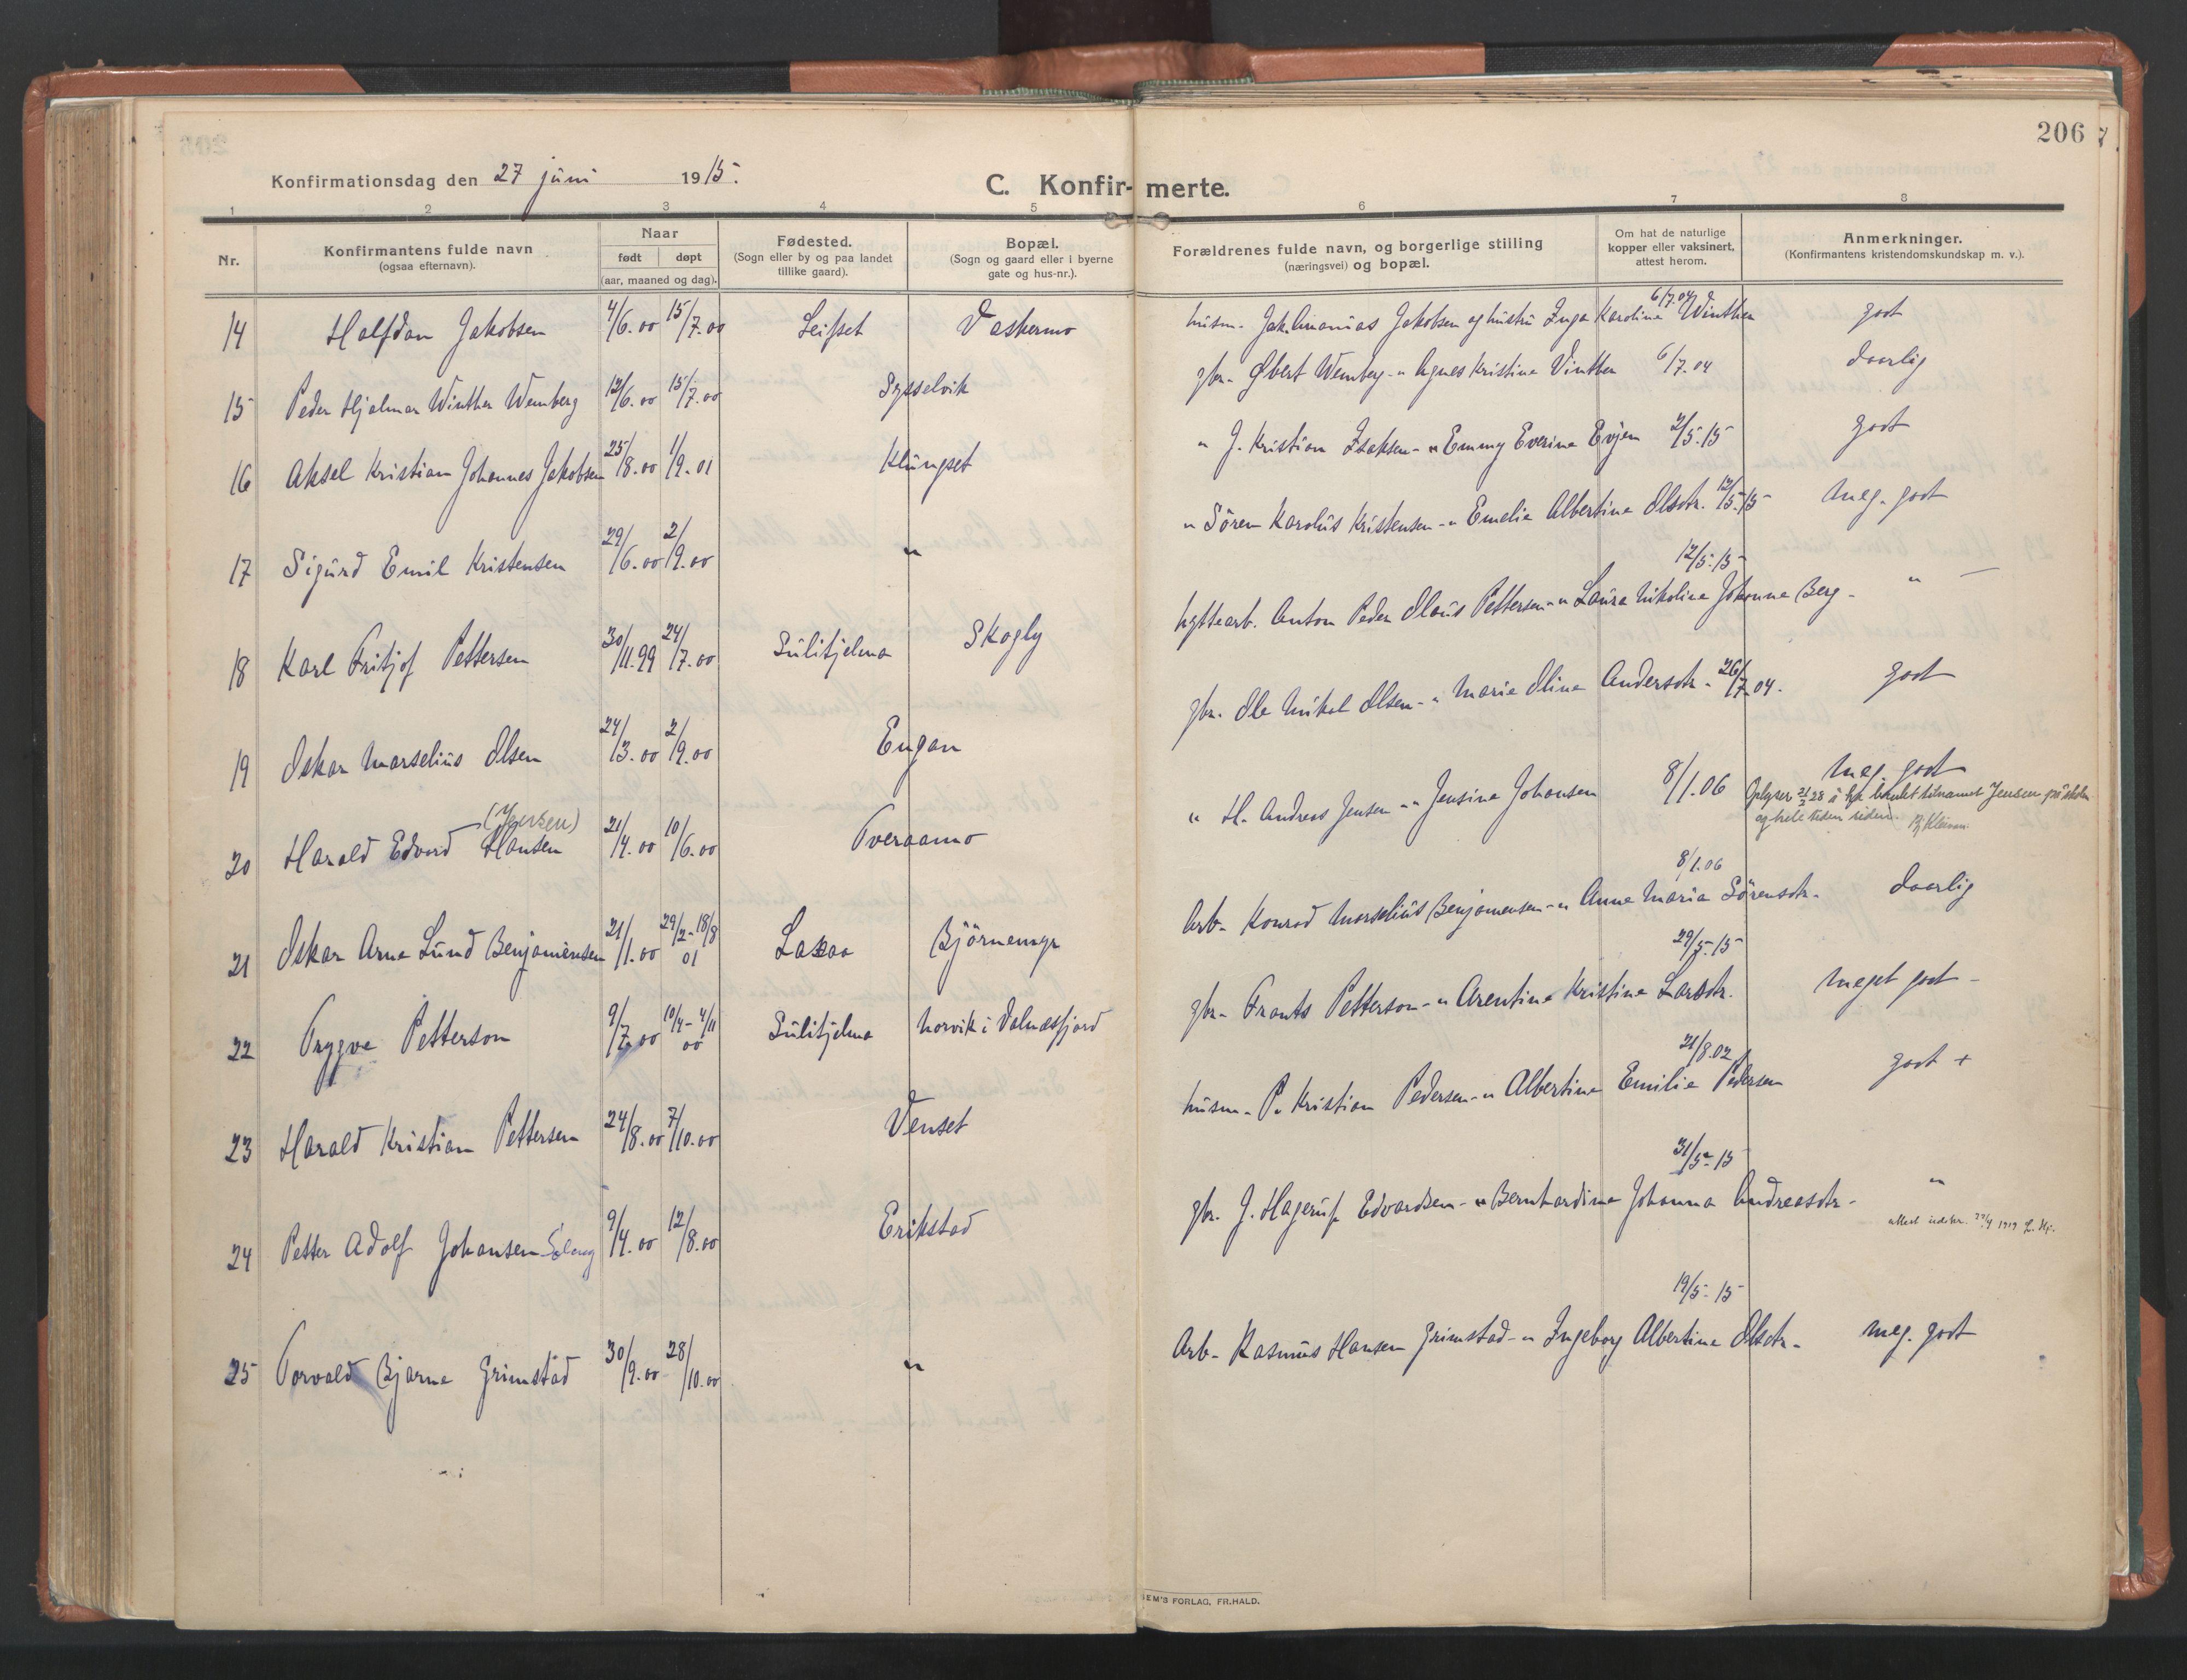 206
Konfirmationsdag den 27 juni 1915.
C. Konfir- merte.
1 2 3 4 5 6 7 8
Nr.
Konfirmantens fulde navn
(ogsaa efternavn).
Naar
født døpt
(aar, maaned og dag).
Fødested.
(Sogn eller by og paa landet
tillike gaard).
Bopæl.
(Sogn og gaard eller i byerne
gate og hus-nr.).
Forældrenes fulde navn, og borgerlige stiilling
(næringsvei) og bopæl.
Om hat de naturlige
kopper eller vaksinert,
attest herom.
Anmerkninger.
(Konfirmantens kristendomskundskap m. v.).
14 Halfdan Jakobsen 4/6.00 15/7.00 Leifset Vaskermo husm. Jak. Ananias Jakobsen og hustru Inga Karoline Winther 6/7.04 godt
15 Peder Hjalmar Winther Wemberg 12/6.00 15/7.00 Sysselvik gbr. Øbert Wemberg - " Agnes Kristine Vinther 6/7.04 daarlig
16 Aksel Kristian Johannes Jakobsen 25/8.00 1/9.01 Klungset " J. Kristian Isaksen - " Emmy Everine Evjen 2/5.15 godt
17 Sigurd Emil Kristensen 29/6.00 2/9.00 " " Sören Karolus Kristensen - " Emelie Albertine Olsdtr. 12/5.15 meg. godt
18 Karl Fritjof Pettersen 30/11.99 24/7.00 Sulitjelma Skogly hyttearb. Anton Peder Olaus Pettersen - " Laura Nikoline Johanne Berg - 12/5.15 " —
19 Oskar Marselius Olsen 24/3.00 2/9.00 Engan gbr. Ole Nikol Olsen - " Marie Oline Andersdtr. 26/7.04. godt
20 Harald Edvard Hansen (Jensen) 21/4.00 10/6.00 Tveraamo " H. Andreas Jensen - " Jensine Johansen 8/1.06 meg. godt
brukt tilnavnet Jensen på skolen
og hele tiden siden.
21 Oskar Arne Lund Benjaminsen 21/1.00 29/2-18/8 01 Laxaa Björnemyr Arb. Konrad Marselius Benjaminsen - " Anne Maria Sörensdtr. 8/1.06 daarlig
22 Trygve Petterson 9/7.00 10/4-4/11 00 Sulitjelma Norvik i Valnesfjord gbr. Frants Petterson - " Arentine Kristine Larsdtr. 29/5.15 meget godt -
23 Harald Kristian Pettersen 24/8.00 7/10.00 Venset husm. P. Kristian Pedersen - " Albertine Emilie Pedersen 21/8.02 godt +
24 Petter Adolf Johansen 9/4.00 12/8.00 Erikstad gbr. J. Hagerup Edvardsen - " Bernhardine Johanna Andreasdtr - 31/5.15 "
attest udstr. 1919
25 Torvald Bjarne Grimstad 30/9.00 28/10.00 " Arb. Rasmus Hansen Grimstad - " Ingeborg Albertine Olsdtr. 19/5.15 meg. godt
EM'S FORLAG, FR. HALD.